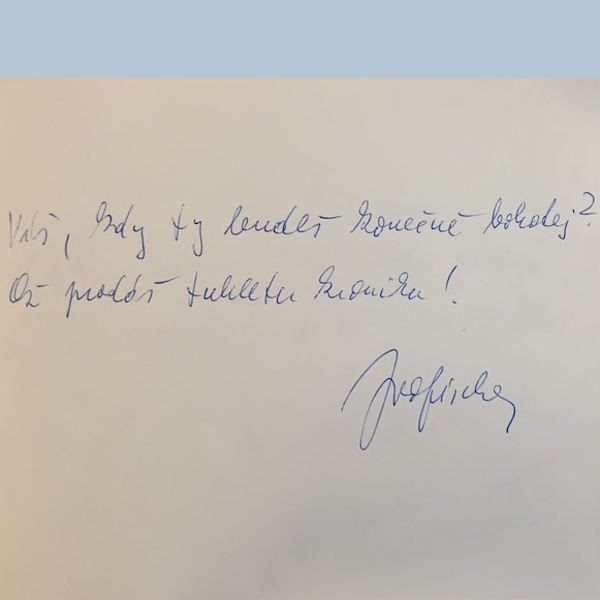 Víš, kdy ty budeš konečně bohatej?
Až prodáš tuhletu kroniku!